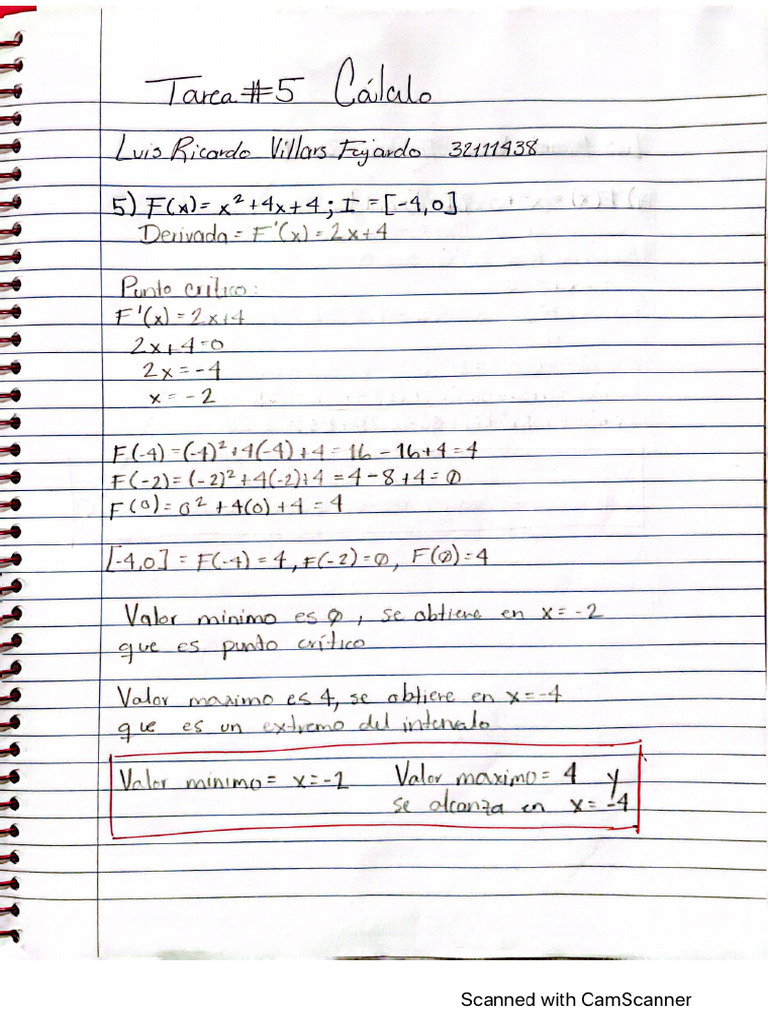 Tarea #5 Cálculo
Luis Ricardo Villars Fajardo 32111438
5) F(x) = x² + 4x + 4 ; I = [-4,0]
Derivada = F'(x) = 2x+4
Punto crítico:
F'(x) = 2x+4
2x+4=0
2x = -4
x = -2
F(-4) = (-4)² + 4(-4) + 4 = 16 - 16+4 = 4
F(-2) = (-2)² + 4(-2)+4 = 4-8+4 = 0
F(0) = 0² + 4(0) + 4 = 4
[-4,0] = F(-4) = 4, F(-2) = 0, F(0) = 4
Valor minimo es 0, se obtiene en x = -2
que es punto crítico
Valor maximo es 4, se obtiene en x = -4
que es un extremo del intervalo
Valor minimo = x = -2 Valor maximo = 4 y
se alcanza en x = -4
Scanned with CamScanner